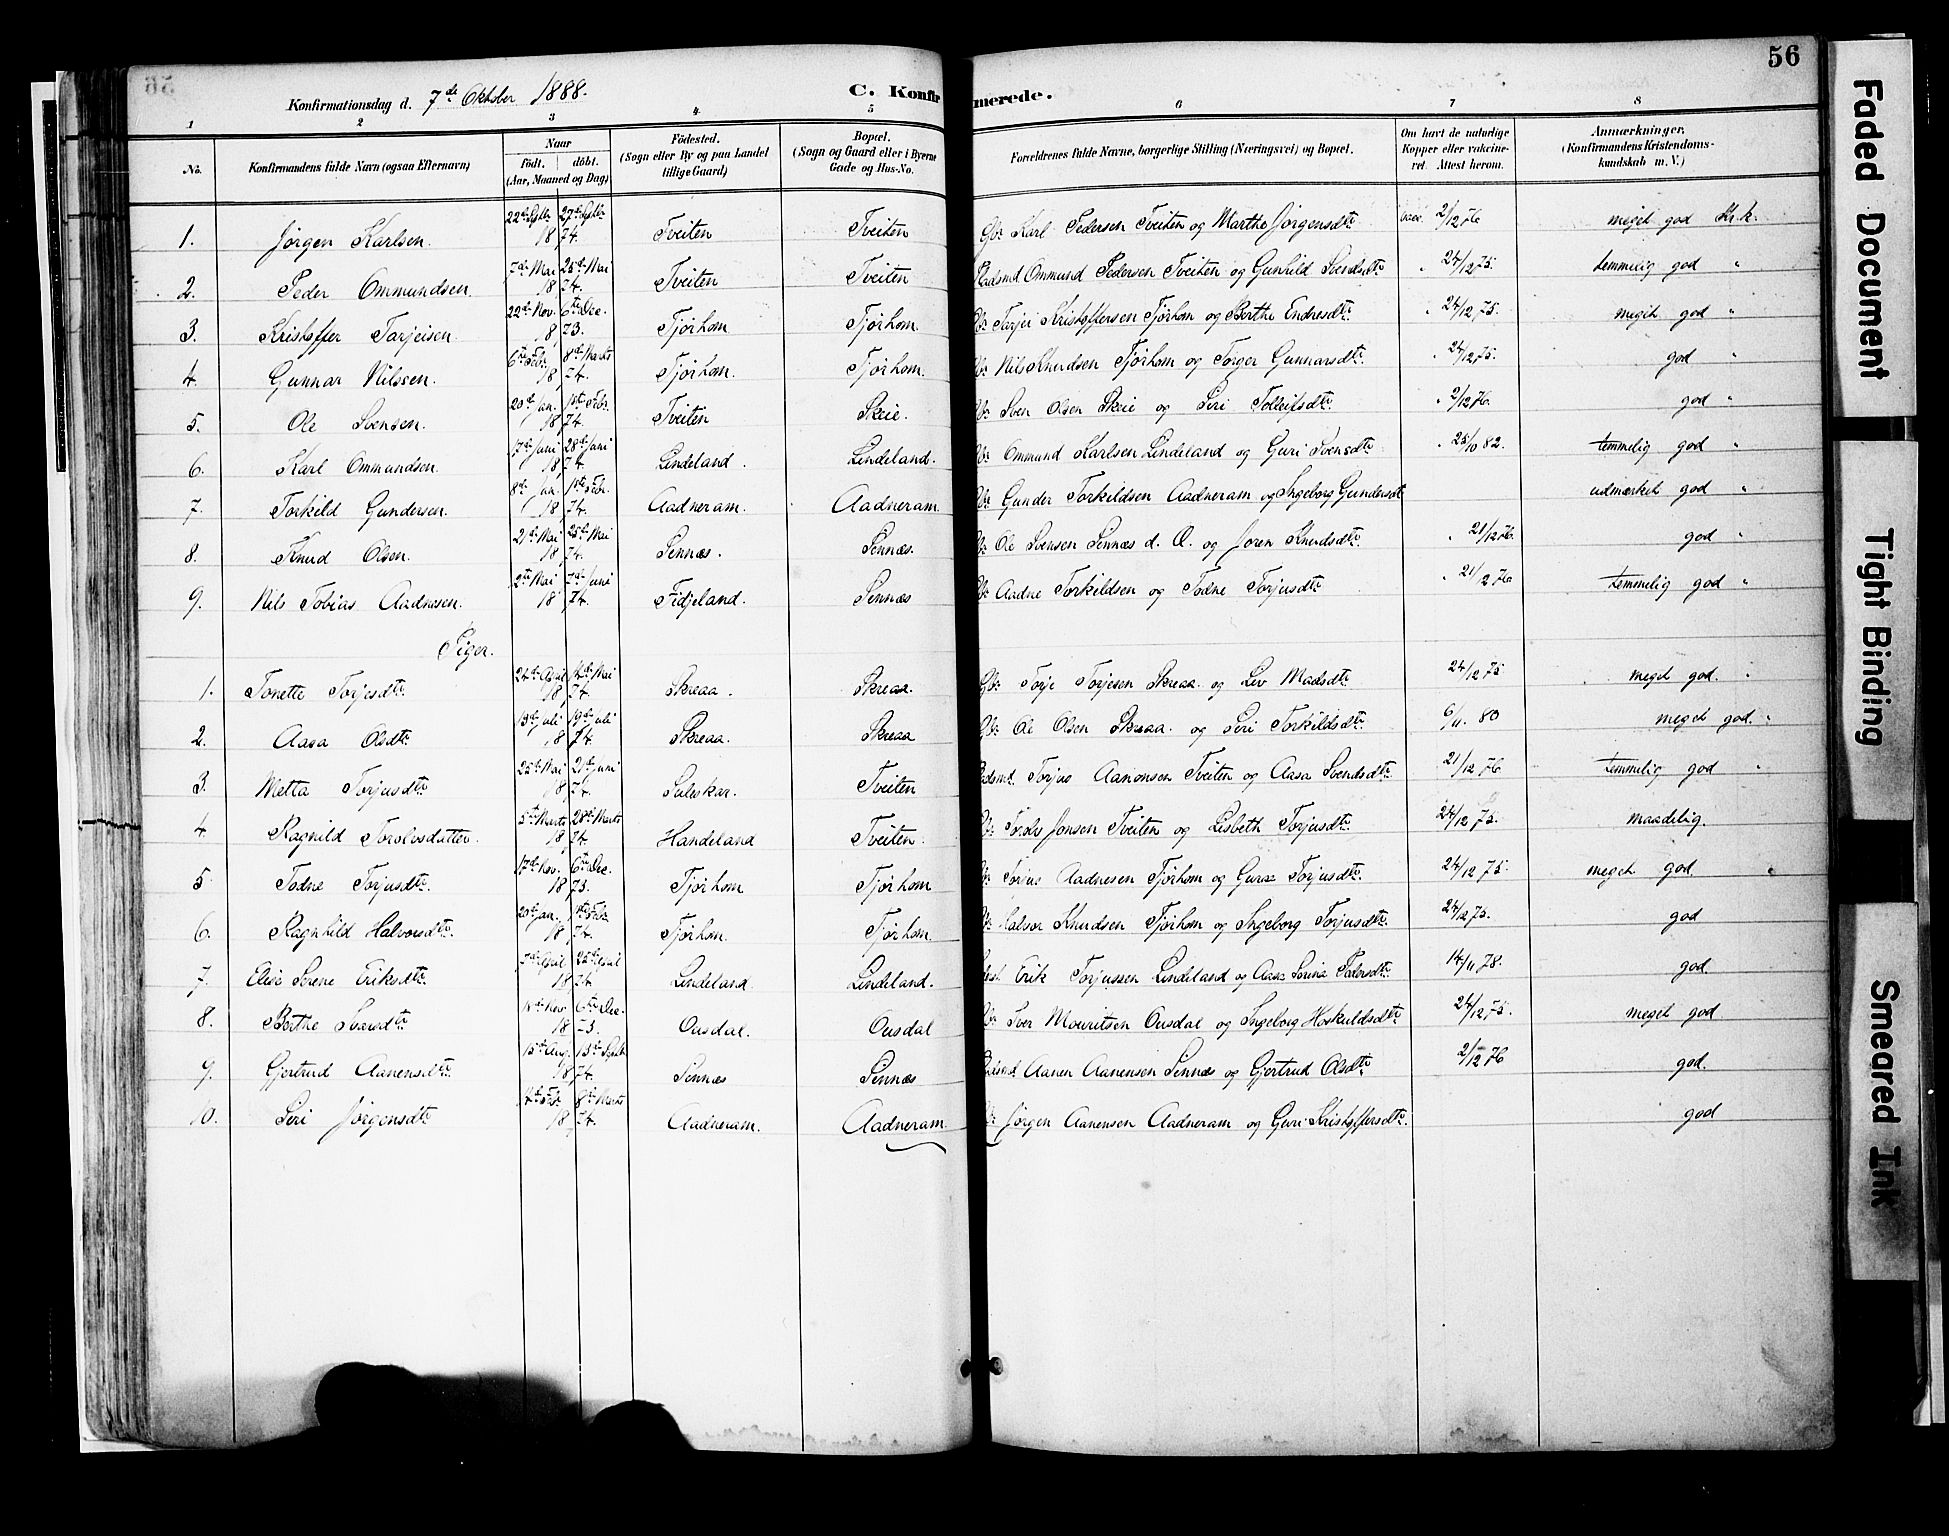 56
Konfirmationsdag d. 7de Oktober 1888. C. Konfirmerede.
1 2 3 4 5 6 7 8
No. Konfirmandens fulde Navn (ogsaa Efternavn) Naar født. døbt. (Aar, Maaned og Dag) Fødested. (Sogn eller By og paa Landet tillige Gaard) Bopæl. (Sogn og Gaard eller i Byerne Gade og Hus-No. Forældrenes fulde Navne, borgerlige Stilling (Næringsvei) og Bopæl. Om havt de naturlige Kopper eller vakcineret. Attest herom. Anmærkninger. (Konfirmandens Kristendomskundskab m. V.)
1. Jørgen Karlsen. 22de Septbr 27de Septbr 1874. Tveiten Tveiten Gbr. Karl Pedersen Tveiten og Marthe Jørgensdtr. vacc. 2/12 76 meget god Kr.k.
2. Peder Ommundsen. 7de Mai 25de Mai 1874. Tveiten Tveiten Pladsmd Ommund Pedersen Tveiten og Gunhild Svendsdtr " 24/12 75. temmelig god "
3. Kristoffer Tarjeisen. 22de Nov. 6te Dec. 1873. Tjørhom Tjørhom. Gbr. Tarjei Kristoffersen Tjørhom og Berthe Endresdtr. " 24/12 75. meget god "
4. Gunnar Nilssen. 6te Febr. 8de Marts 1874. Tjørhom. Tjørhom. Gbr. Nils Knudsen Tjørhom og Torger Gunnarsdtr. " 24/12 75. god "
5. Ole Svensen. 20de Jan. 1ste Febr. 1874. Tveiten Skeie. Gbr. Sven Olsen Skeie og Siri Tolleifsdtr. " 2/12 76. god "
6. Karl Ommundsen. 17de Juni 28de Juni 1874. Lindeland. Lindeland. Gbr. Ommund Karlsen Lindeland og Guri Svensdtr " 25/10 82. temmelig god "
7. Torkild Gundersen. 8de Jan. 1ste Febr. 1874. Aadneram. Aadneram. Gbr. Gunder Torkildsen Aadneram og Ingeborg Gundersdt udmærket god "
8. Knud Olsen. 21de Mai 25de Mai 1874. Sinnæs. Sinnæs. Gbr. Ole Svensen Sinnæs d. Æ. og Joren Knudsdtr. " 21/12 76. god "
9. Nils Tobias Aadnesen. 2den Mai 7de Juni 1874. Fidjeland. Sinnæs Gbr. Aadne Torkildsen og Todne Torjusdtr " 21/12 76 temmelig god "
Piger.
1. Tonette Torjesdtr. 24de April 14de Mai 1874. Skreaa. Skreaa. Gbr. Torje Torjesen Skreaa. og Liv Madsdtr. 24/12 75 meget god. "
2. Aasa Olsdtr. 13de Juli 19de Juli 1874. Skreaa. Skreaa Gbr. Ole Olsen Skreaa. og Siri Torkildsdtr. 6/11. 80 meget god. "
3. Metta Torjusdtr 25de Mai 21de Juni 1874. Suleskar. Tveiten Pladsmd. Torjus Aanonsen Tveiten og Aasa Svendsdtr 21/12 76 temmelig god "
4 Ragnild Torolvsdatter. 5te Marts 28de Marts 1874. Handeland Tveiten Gbr. Torolv Jonsen Tveiten og Lisbeth Torjusdtr. 24/12 75. maadelig.
5 Todne Torjusdtr. 17de Nov. 6te Dec. 1873. Tjørhom Tjørhom Gbr. Torjus Aadnesen Tjørhom og Guroe Torjusdtr. 24/12 75. meget god "
6. Ragnhild Halvorsdtr. 20de Jan. 1ste Febr. 1874. Tjørhom. Tjørhom. Gbr. Halvor Knudsen Tjørhom og Ingeborg Torjusdtr. 24/12 75. god
7. Elise Serene Eriksdtr. 7de April 25de April 1874. Lindeland Lindeland. Erik Torjussen Lindeland og Aasa Serina Pedersdtr. 14/11 78. god
8. Berthe Ivarsdtr Nov. 6te Dec. 1873. Ousdal. Ousdal Gbr. Iver Mouritsen Ousdal og Ingeborg Hoskuldsdtr 24/12 75. meget god
9. Gjertrud Aanensdtr. 15de Aug. 13de Septbr 1874. Sinnæs Sinnæs Pladsmd Aanen Aanensen Sinnæs og Gjertrud Olsdtr. 2/12 76 god.
10. Siri Jørgensdtr 14de Febr. 8de Marts 1874. Aadneram. Aadneram Gbr. Jørgen Aanensen Aadneram og Guri Kristoffersdtr. god
Faded Document
Tight Binding
Smeared Ink